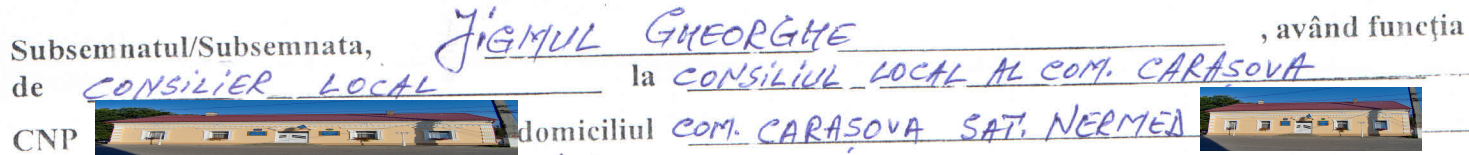 Subsemnatul/Subsemnata, JIGMUL GHEORGHE, având funcţia
de CONSILIER LOCAL la CONSILIUL LOCAL AL COM. CARAŞOVA
CNP domiciliul COM. CARAŞOVA SAT. NERMED